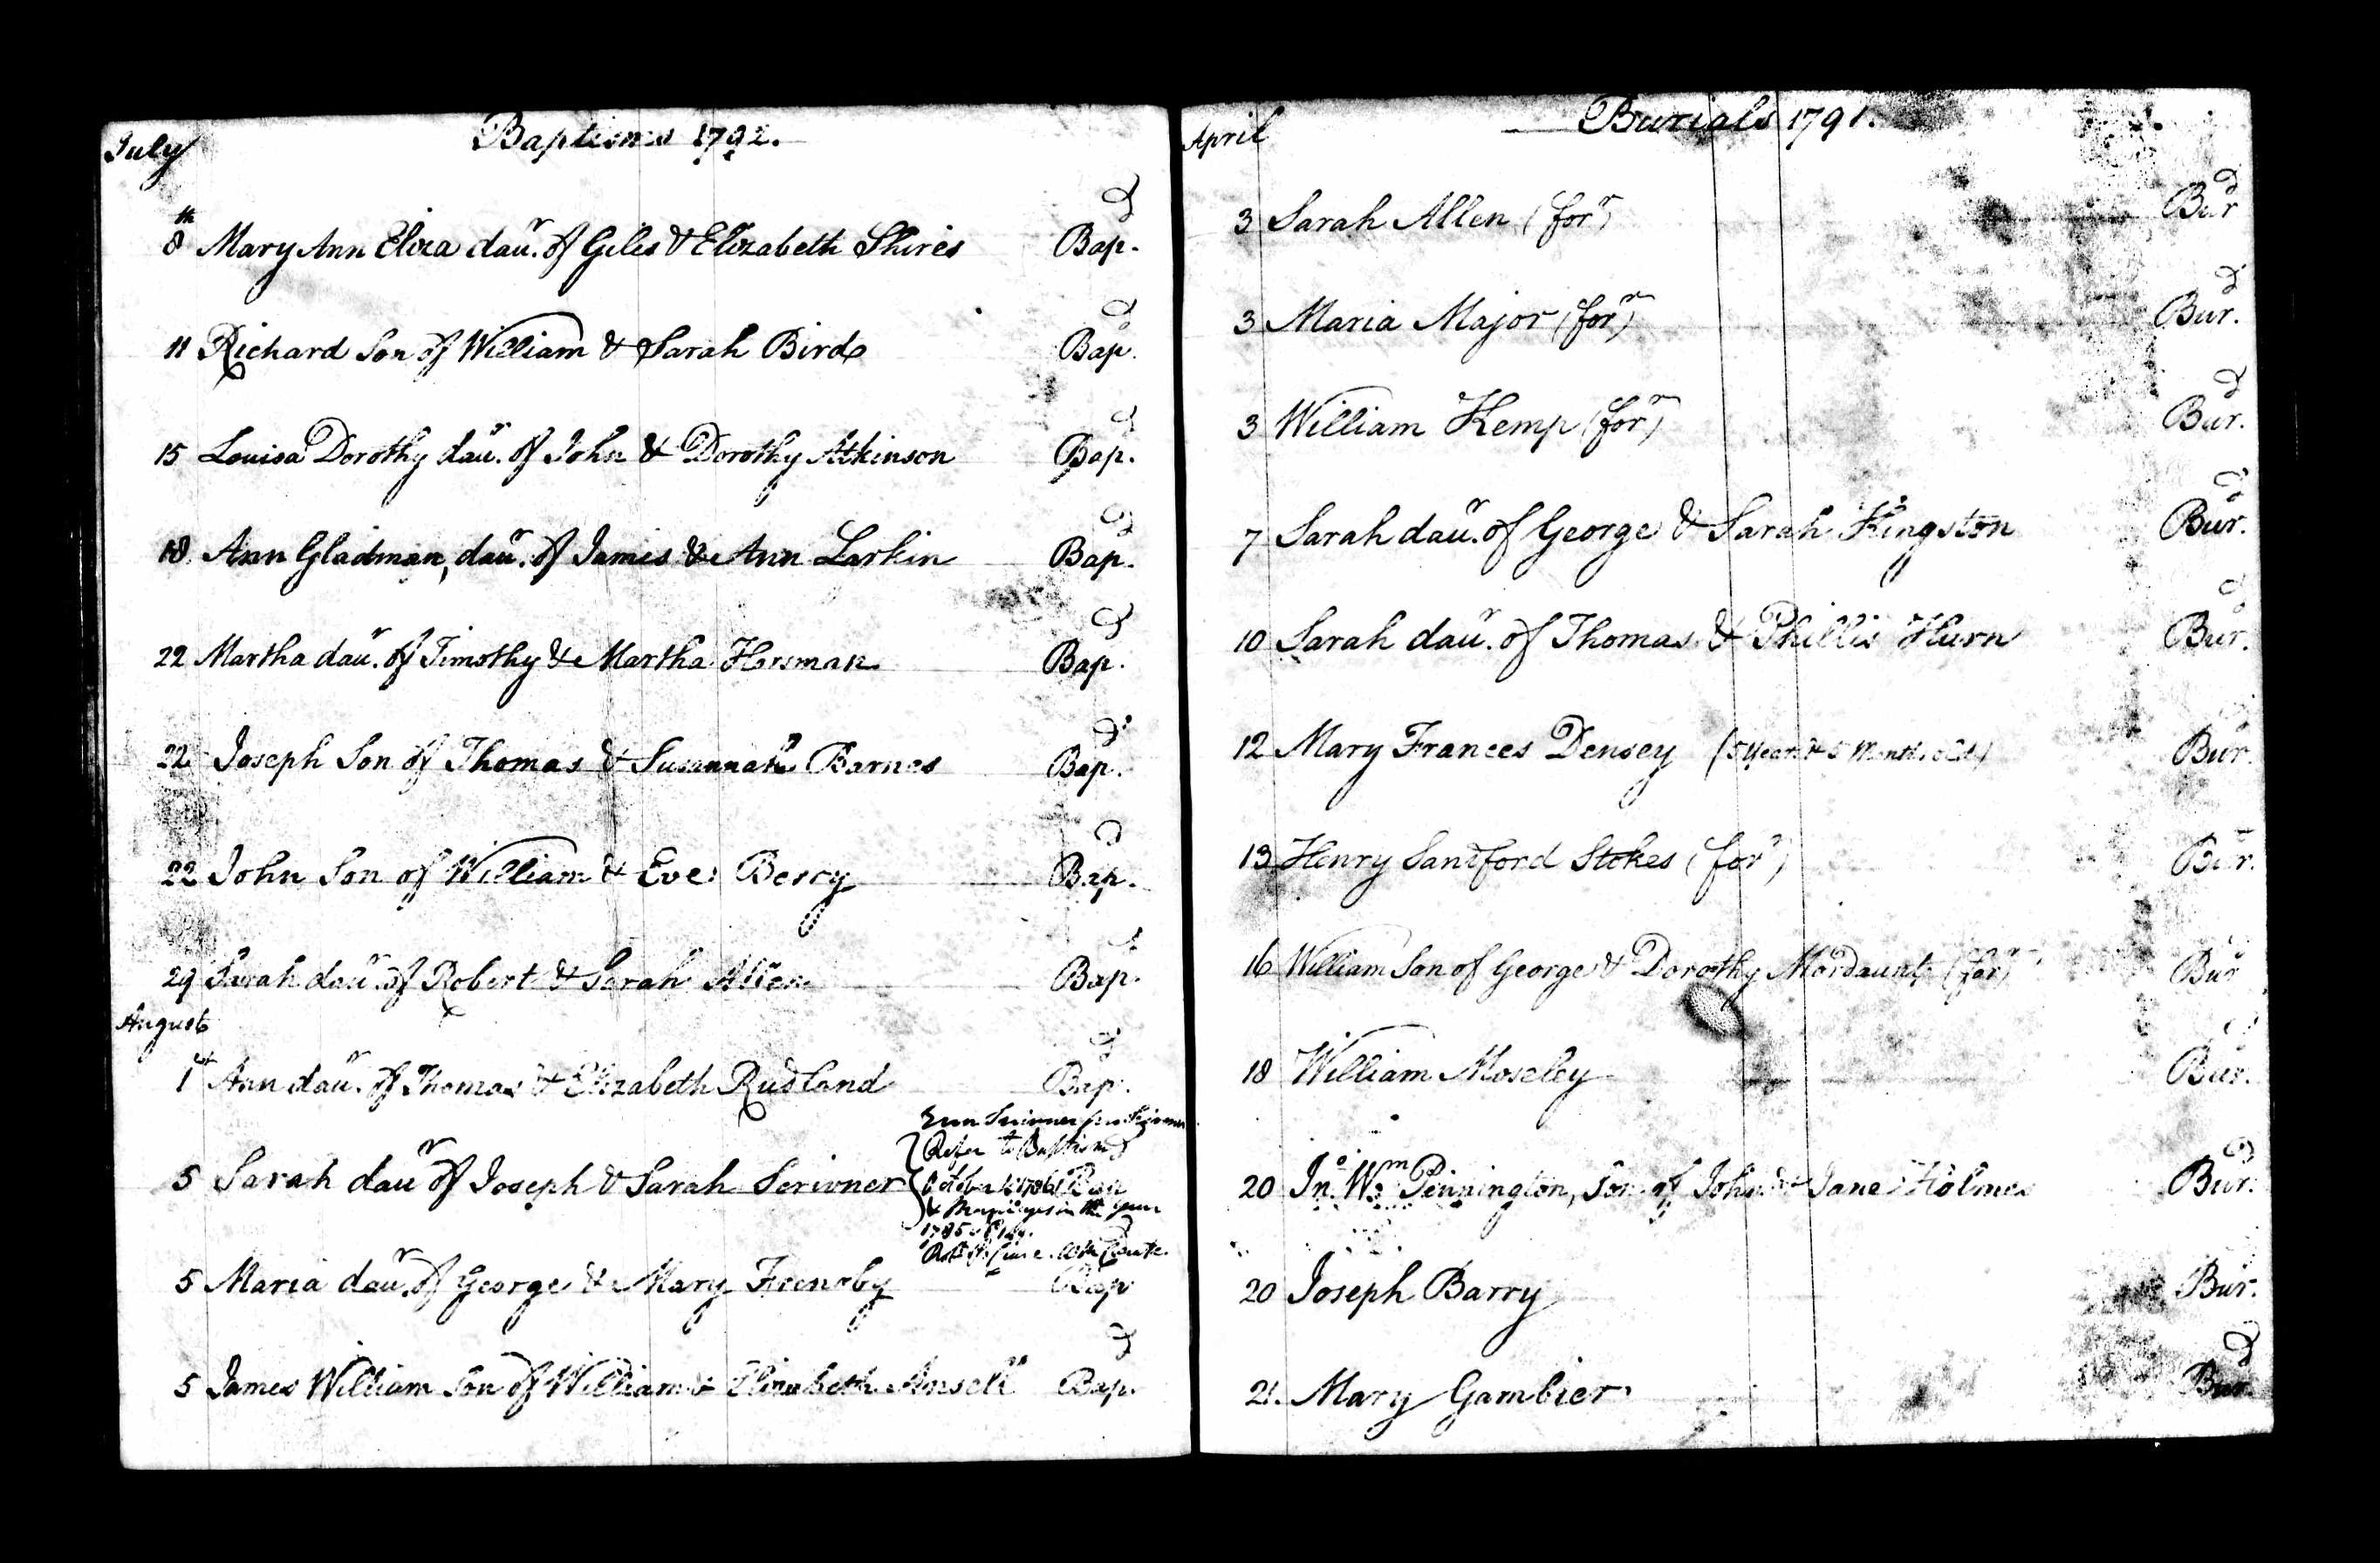 Baptisms 1792.
July
8th Mary Ann Eliza daur. of Giles & Elizabeth Shires Bapd.
11 Richard Son of William & Sarah Bird Bapd.
15 Louisa Dorothy daur. of John & Dorothy Atkinson Bapd.
18. Ann Gladman, daur. of James & Ann Larkin Bapd.
22 Martha daur. of Timothy & Martha Horsman Bapd.
22 Joseph Son of Thomas & Susannah Barnes Bapd.
22 John Son of William & Eve Bercy Bapd.
29 Sarah daur. of Robert & Sarah Allen Bapd.
August
1st Ann daur. of Thomas & Elizabeth Rudland Bapd.
5 Sarah daur of Joseph & Sarah Scrivner
Refer to Baptism
October 1786
& Marriages in the year
1785
5 Maria daur. of George & Mary Bap
5 James William Son of William & Elizabeth Ansell Bapd.
Burials 1791.
April
3 Sarah Allen (forr) Burd
3 Maria Major (forr) Burd.
3 William Kemp (forr) Burd.
7 Sarah daur. of George & Sarah Kingston Burd.
10 Sarah daur. of Thomas & Phillis Hurn Burd.
12 Mary Frances Densey (5 Years & 5 Months old) Burd.
13 Henry Sandford Stokes (forr) Burd.
16 William Son of George & Dorothy Mordaunt (forr) Burd
18 William Moseley Burd.
20 Jno. Wm. Pennington, Son of John & Jane Holmes Burd.
20 Joseph Barry Burd.
21. Mary Gambier Burd.